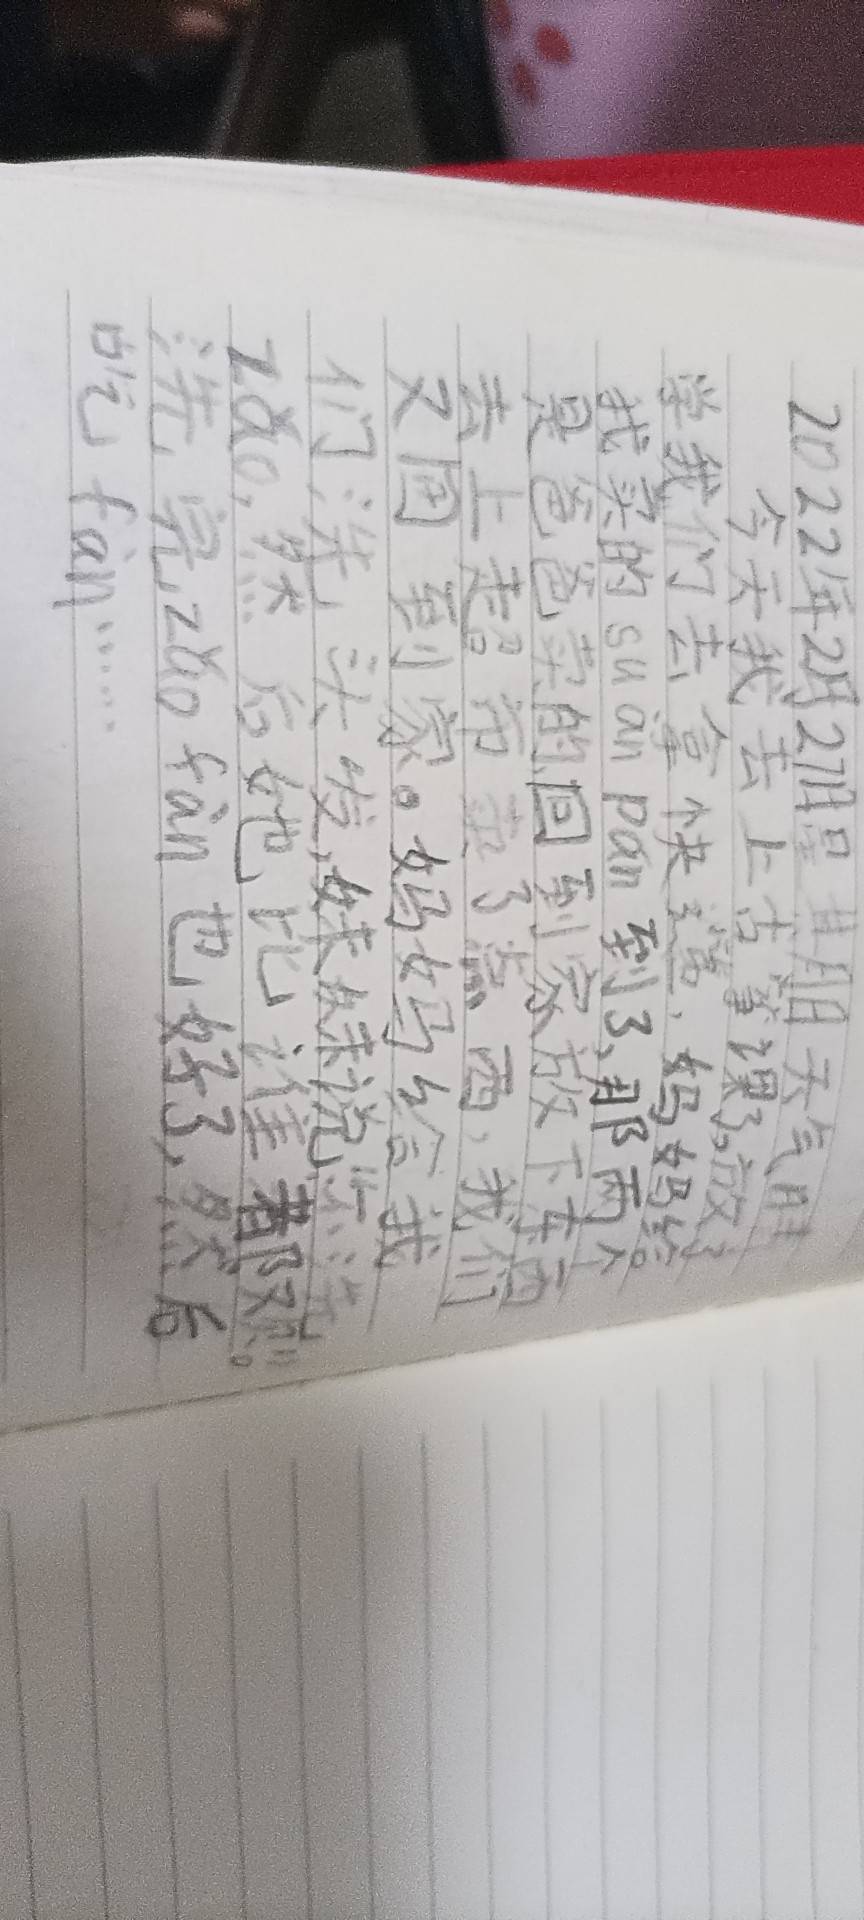 2022年2月27日星期 天气晴
今天我去上古筝课了,放了
学我们去拿快递,妈妈给
我买的 suan pán 到了,那两个
是爸爸买的回到家放下东西
去上超市买了点西,我们
又回到家。妈妈给我
们洗头发,妹妹说先洗
zǎo,然后她比谁都快。
洗完zǎo fàn 也好了,然后
吃fàn……